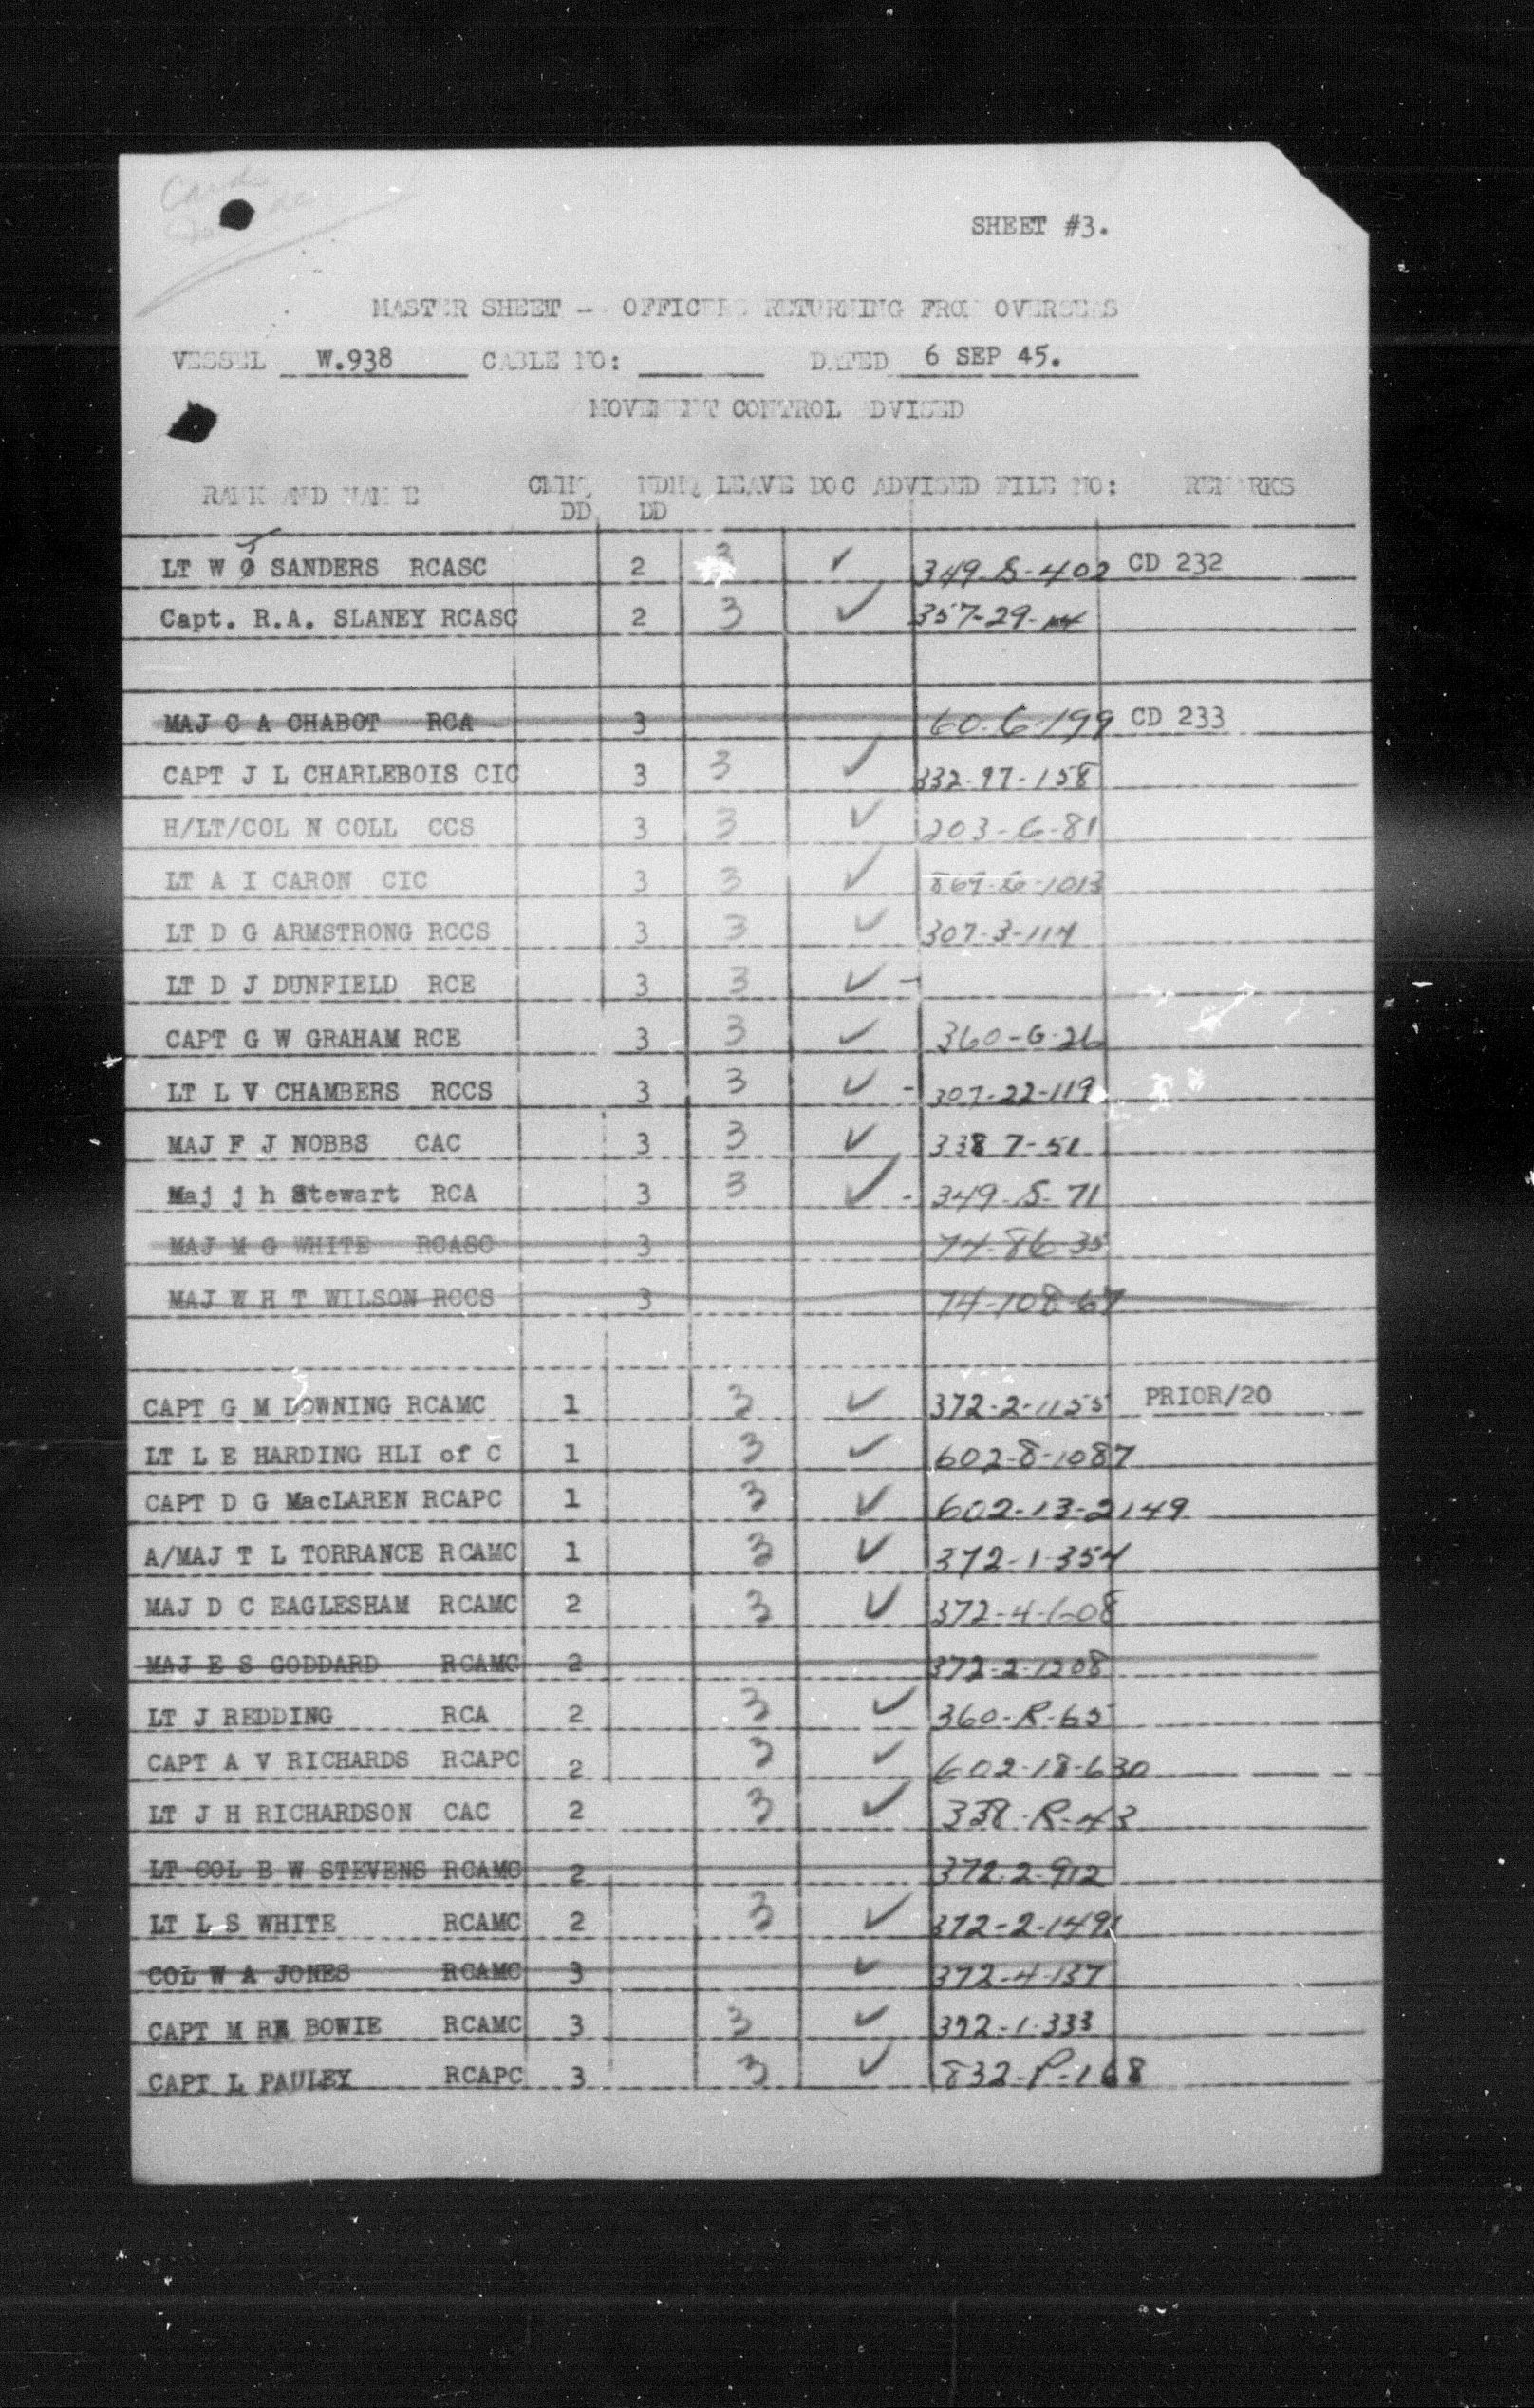 SHEET #3.
MASTER SHEET - OFFICERS RETURNING FROM OVERSEAS
VESSEL W.938 CABLE NO: DATED 6 SEP 45.
MOVEMENT CONTROL ADVISED
RANK AND NAME CMHQ NDHQ LEAVE DOC ADVISED FILE NO: REMARKS
DD DD
LT W J SANDERS RCASC 2 3 ✓ 349-S-402 CD 232
Capt. R.A. SLANEY RCASC 2 3 ✓ 357-29-
MAJ C A CHABOT RCA 3 60-C-199 CD 233
CAPT J L CHARLEBOIS CIC 3 3 ✓ 332-97-158
H/LT/COL N COLL CCS 3 3 ✓ 203-C-81
LT A I CARON CIC 3 3 ✓ 
LT D G ARMSTRONG RCCS 3 3 ✓ 307-3-114
LT D J DUNFIELD RCE 3 3 ✓ -
CAPT G W GRAHAM RCE 3 3 ✓ 360-G-26
LT L V CHAMBERS RCCS 3 3 ✓ - 307-22-119
MAJ F J NOBBS CAC 3 3 ✓ 338 7-51
Maj j h Stewart RCA 3 3 ✓ - 349-S-71
MAJ M G WHITE RCASC 3 74-86-35
MAJ W H T WILSON RCCS 3 74-108-67
CAPT G M DOWNING RCAMC 1 3 ✓ 372-2-1155 PRIOR/20
LT L E HARDING HLI of C 1 3 ✓ 602-8-1087
CAPT D G MacLAREN RCAPC 1 3 ✓ 602-13-2149
A/MAJ T L TORRANCE RCAMC 1 3 ✓ 372-1-354
MAJ D C EAGLESHAM RCAMC 2 3 ✓ 372-4-608
MAJ E S GODDARD RCAMC 2 372-2-1208
LT J REDDING RCA 2 3 ✓ 360-R-65
CAPT A V RICHARDS RCAPC 2 3 ✓ 602-18-630
LT J H RICHARDSON CAC 2 3 ✓ 338-R-43
LT COL B W STEVENS RCAMC 2 372-2-912
LT L S WHITE RCAMC 2 3 ✓ 372-2-1491
COL W A JONES RCAMC 3 ✓ 372-4-137
CAPT M R BOWIE RCAMC 3 3 ✓ 392-1-333
CAPT L PAULEY RCAPC 3 3 ✓ 832-P-168